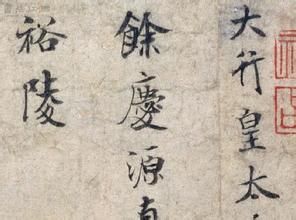 大行皇太
餘慶源
裕陵